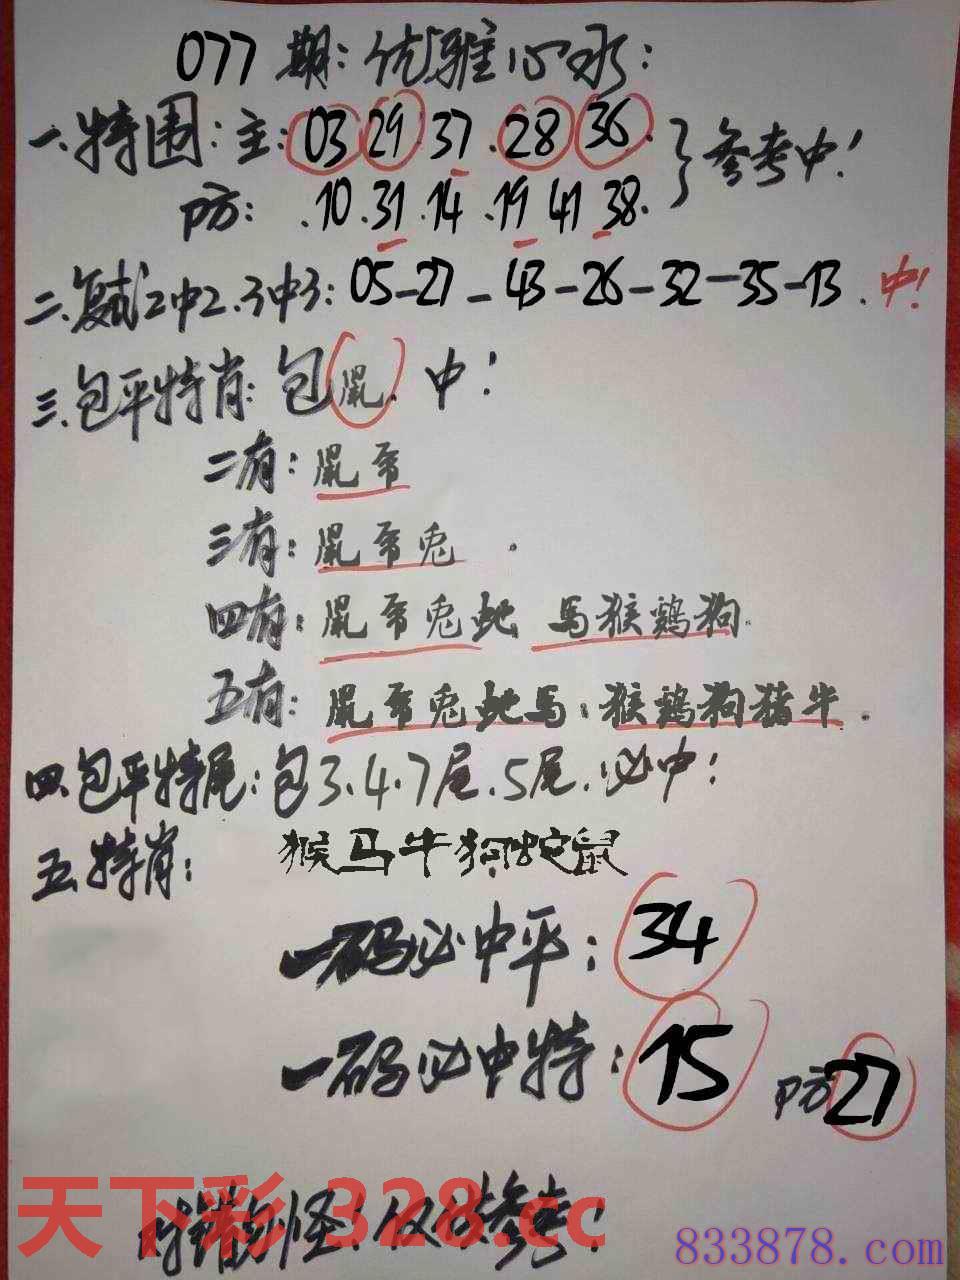 077期:优雅心水:
一.特围:主:03 29.37.28 36. 参考中!
防:.10.31.14.19 41 38.
二.复式2中2.3中3:05-27-43-26-32-35-13.中!
三.包平特肖:包鼠.中!
二有:鼠帝
三有:鼠帝兎.
四有:鼠帝兎蛇 馬猴鷄狗.
五有:鼠帝兎蛇馬:猴鷄狗猪牛.
四.包平特尾:包3.4.7尾.5尾.必中!
五.特肖:猴马牛狗蛇鼠
一码必中平:34
一码必中特:15 防27
天下彩 328.cc
错勿怪!仅供参考!
833878.com